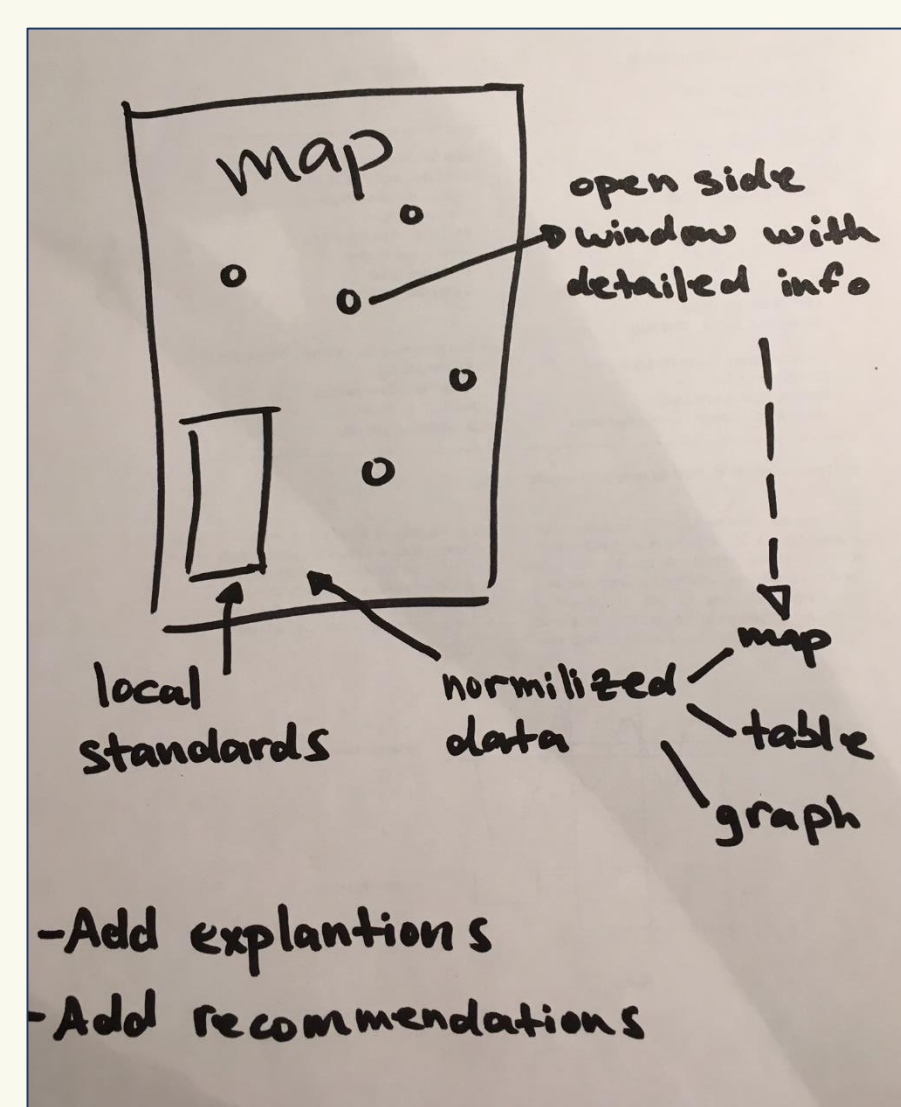 map
open side
window with
detailed info
local
standards
normilized
data
map
table
graph
-Add explantions
-Add recommendations